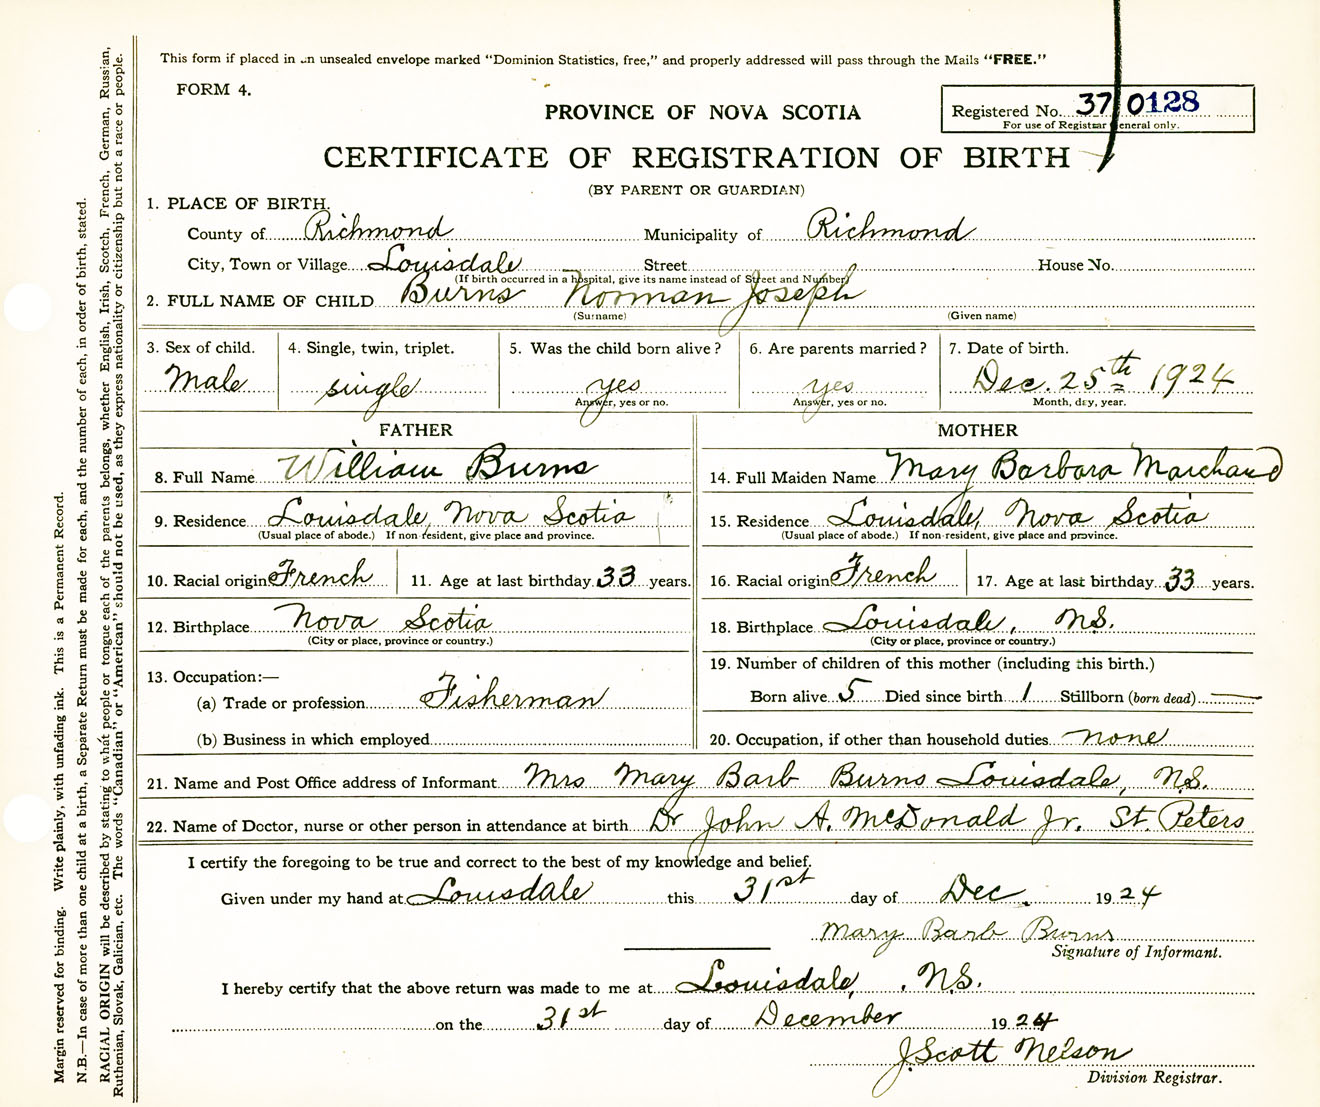 This form if placed in an unsealed envelope marked "Dominion Statistics, free," and properly addressed will pass through the Mails "FREE."
FORM 4.
PROVINCE OF NOVA SCOTIA
Registered No. 37 0128
For use of Registrar General only.
CERTIFICATE OF REGISTRATION OF BIRTH
(BY PARENT OR GUARDIAN)
1. PLACE OF BIRTH.
County of Richmond Municipality of Richmond
City, Town or Village Louisdale Street House No.
(If birth occurred in a hospital, give its name instead of Street and Number)
2. FULL NAME OF CHILD Burns Norman Joseph
(Surname) (Given name)
3. Sex of child. 4. Single, twin, triplet. 5. Was the child born alive? 6. Are parents married? 7. Date of birth.
Male single yes yes Dec. 25th 1924
Answer, yes or no. Answer, yes or no. Month, day, year.
FATHER MOTHER
8. Full Name William Burns 14. Full Maiden Name Mary Barbara Marchand
9. Residence Louisdale, Nova Scotia 15. Residence Louisdale, Nova Scotia
(Usual place of abode.) If non-resident, give place and province. (Usual place of abode.) If non-resident, give place and province.
10. Racial origin French 11. Age at last birthday 33 years. 16. Racial origin French 17. Age at last birthday 33 years.
12. Birthplace Nova Scotia 18. Birthplace Louisdale, N.S.
(City or place, province or country.) (City or place, province or country.)
13. Occupation:— 19. Number of children of this mother (including this birth.)
(a) Trade or profession Fisherman Born alive 5 Died since birth 1 Stillborn (born dead) —
(b) Business in which employed 20. Occupation, if other than household duties none
21. Name and Post Office address of Informant Mrs Mary Barb Burns Louisdale, N.S.
22. Name of Doctor, nurse or other person in attendance at birth Dr John A. McDonald Jr. St. Peters
I certify the foregoing to be true and correct to the best of my knowledge and belief.
Given under my hand at Louisdale this 31st day of Dec. 1924
Mary Barb Burns
Signature of Informant.
I hereby certify that the above return was made to me at Louisdale, N.S.
on the 31st day of December 1924
J. Scott Nelson
Division Registrar.
Margin reserved for binding. Write plainly, with unfading ink. This is a Permanent Record.
N.B.—In case of more than one child at a birth, a Separate Return must be made for each, and the number of each, in order of birth, stated.
RACIAL ORIGIN will be described by stating to what people or tongue each of the parents belongs, whether English, Irish, Scotch, French, German, Russian,
Ruthenian, Slovak, Galician, etc. The words "Canadian" or "American" should not be used, as they express nationality or citizenship but not a race or people.